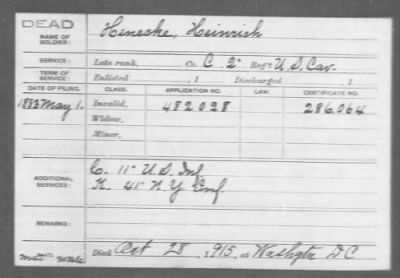 DEAD
NAME OF SOLDIER: Heneske, Heinrich
SERVICE: Late rank, Co. C 2" Reg't U.S. Cav.
TERM OF SERVICE: Enlisted , 1 Discharged , 1
DATE OF FILING. CLASS. APPLICATION NO. LAW. CERTIFICATE NO.
1883 May 1. Invalid, 482028 286.064
Widow,
Minor,
ADDITIONAL SERVICES: C. 11" U.S. Inf
K. 41" N.Y. Inf
REMARKS:
Died Oct 28, 1915, at Washgtn D C